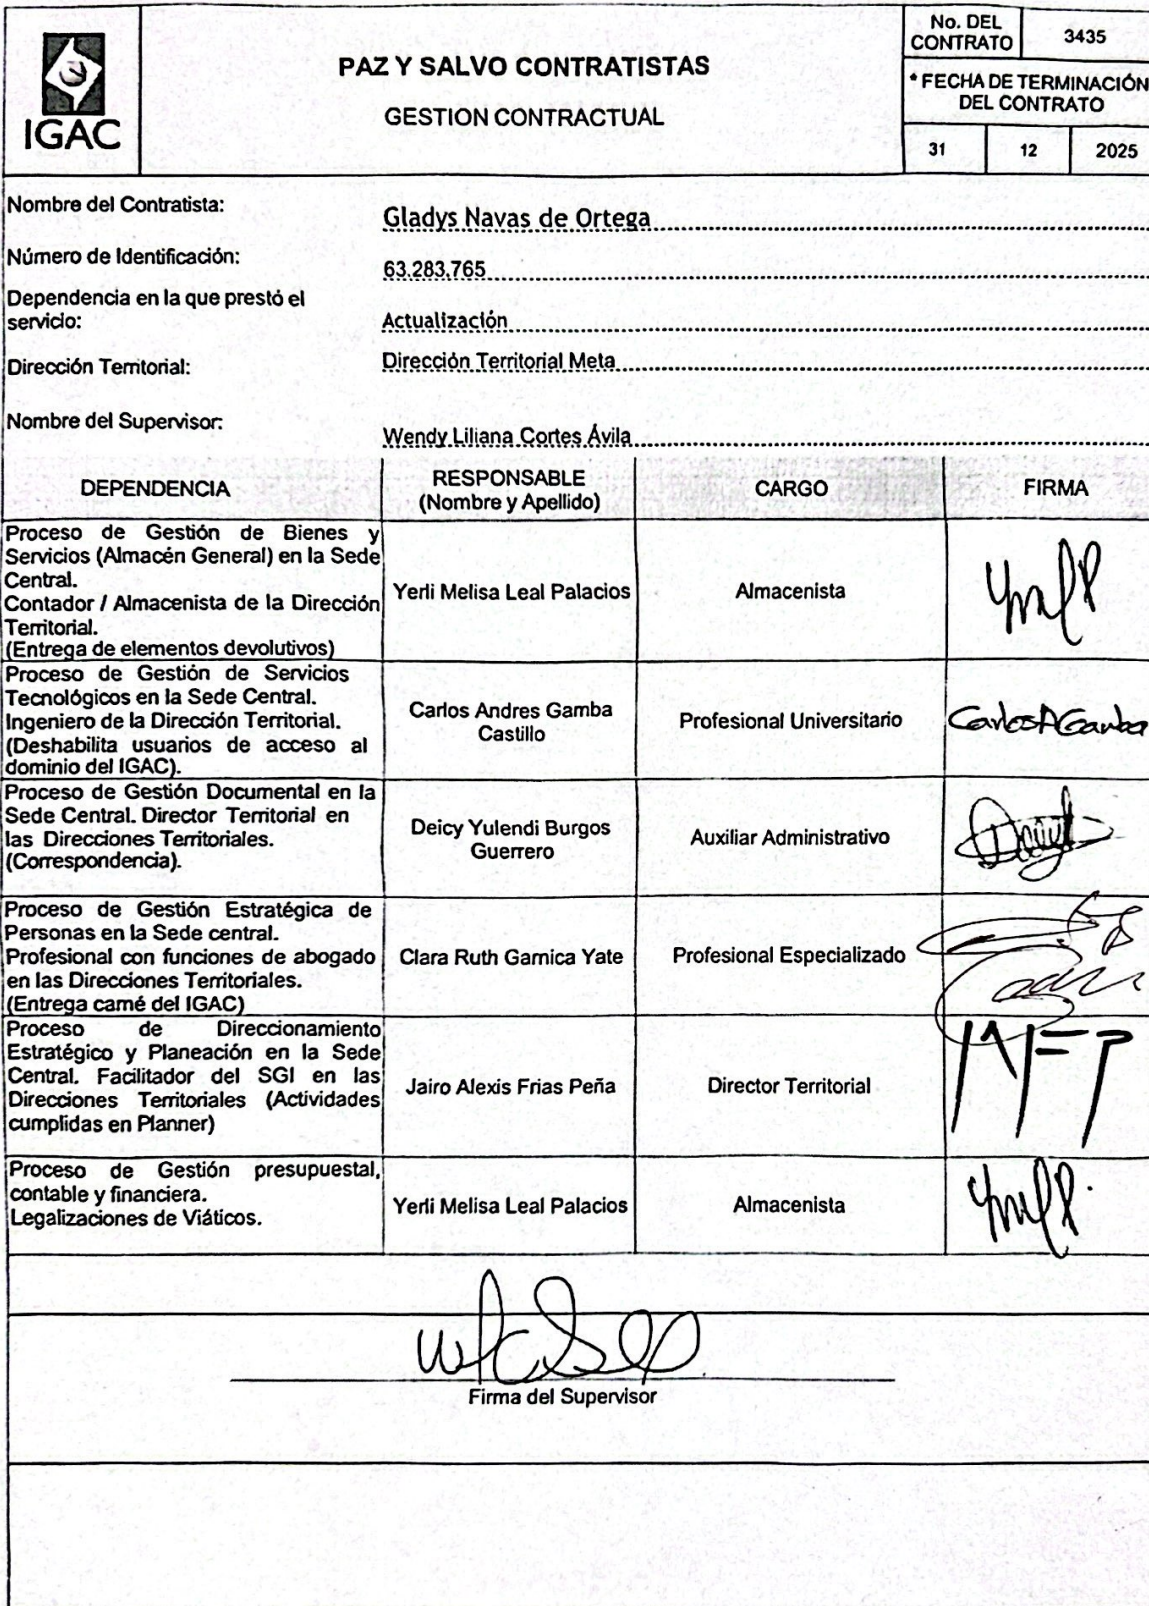 IGAC
PAZ Y SALVO CONTRATISTAS
GESTION CONTRACTUAL
No. DEL
CONTRATO
3435
* FECHA DE TERMINACIÓN
DEL CONTRATO
31 12 2025
Nombre del Contratista:
Gladys Navas de Ortega
Número de Identificación:
63.283.765
Dependencia en la que prestó el
servicio:
Actualización
Dirección Territorial:
Dirección Territorial Meta
Nombre del Supervisor:
Wendy Liliana Cortes Ávila
DEPENDENCIA
RESPONSABLE
(Nombre y Apellido)
CARGO
FIRMA
Proceso de Gestión de Bienes y
Servicios (Almacén General) en la Sede
Central.
Contador / Almacenista de la Dirección
Territorial.
(Entrega de elementos devolutivos)
Yerli Melisa Leal Palacios
Almacenista
Proceso de Gestión de Servicios
Tecnológicos en la Sede Central.
Ingeniero de la Dirección Territorial.
(Deshabilita usuarios de acceso al
dominio del IGAC).
Carlos Andres Gamba
Castillo
Profesional Universitario
CarlosAGamba
Proceso de Gestión Documental en la
Sede Central. Director Territorial en
las Direcciones Territoriales.
(Correspondencia).
Deicy Yulendi Burgos
Guerrero
Auxiliar Administrativo
Proceso de Gestión Estratégica de
Personas en la Sede central.
Profesional con funciones de abogado
en las Direcciones Territoriales.
(Entrega carné del IGAC)
Clara Ruth Garnica Yate
Profesional Especializado
Proceso de Direccionamiento
Estratégico y Planeación en la Sede
Central. Facilitador del SGI en las
Direcciones Territoriales (Actividades
cumplidas en Planner)
Jairo Alexis Frias Peña
Director Territorial
Proceso de Gestión presupuestal,
contable y financiera.
Legalizaciones de Viáticos.
Yerli Melisa Leal Palacios
Almacenista
Firma del Supervisor